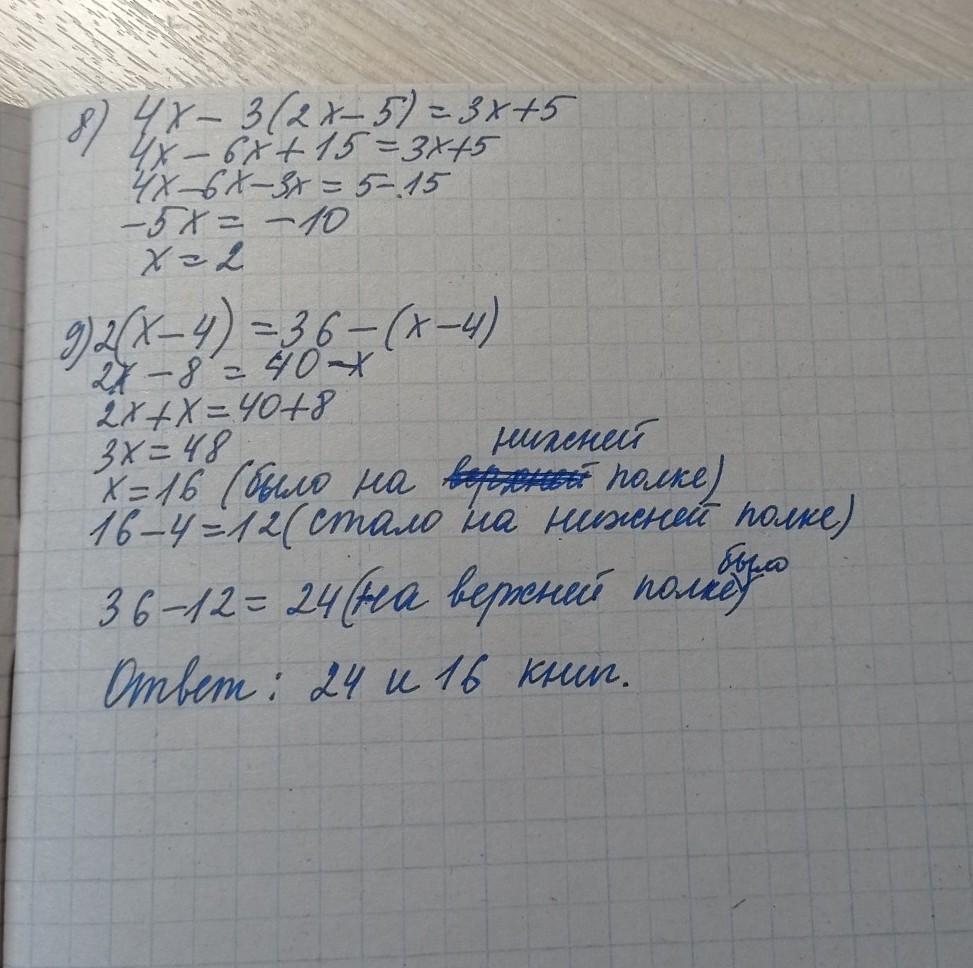 8) 4x - 3(2x - 5) = 3x + 5
4x - 6x + 15 = 3x + 5
4x - 6x - 3x = 5 - 15
-5x = -10
x = 2
9) 2(x - 4) = 36 - (x - 4)
2x - 8 = 40 - x
2x + x = 40 + 8
3x = 48
нижней
x = 16 (было на верхней полке)
16 - 4 = 12 (стало на нижней полке)
было
36 - 12 = 24 (на верхней полке)
Ответ: 24 и 16 книг.